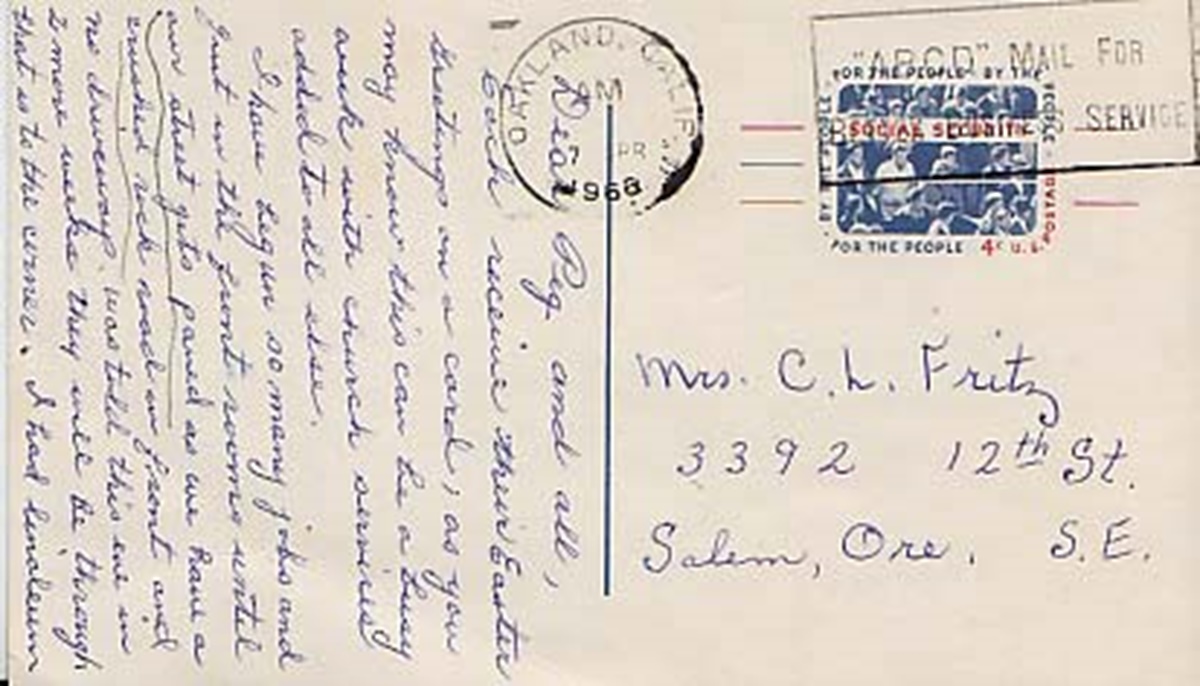 Dear Peg and all,
Each receive their Easter
Greetings on a card, as you
may know this can be a busy
week with church services
added to all else.
I have begun so many jobs and
Just in the front rooms until
our street gets paved as we have a
crushed rock road in front and
no driveway. was told this eve in
2 more weeks they will be through
that is to the corner. I had linoleum
KLAND, CALIF.
AM
7 PR
1966
"ABCD" MAIL FOR
SERVICE
FOR THE PEOPLE BY THE PEOPLE
SOCIAL SECURITY
FOR THE PEOPLE 4c U.S. POSTAGE
Mrs. C. L. Fritz
3392 12th St.
Salem, Ore. S.E.